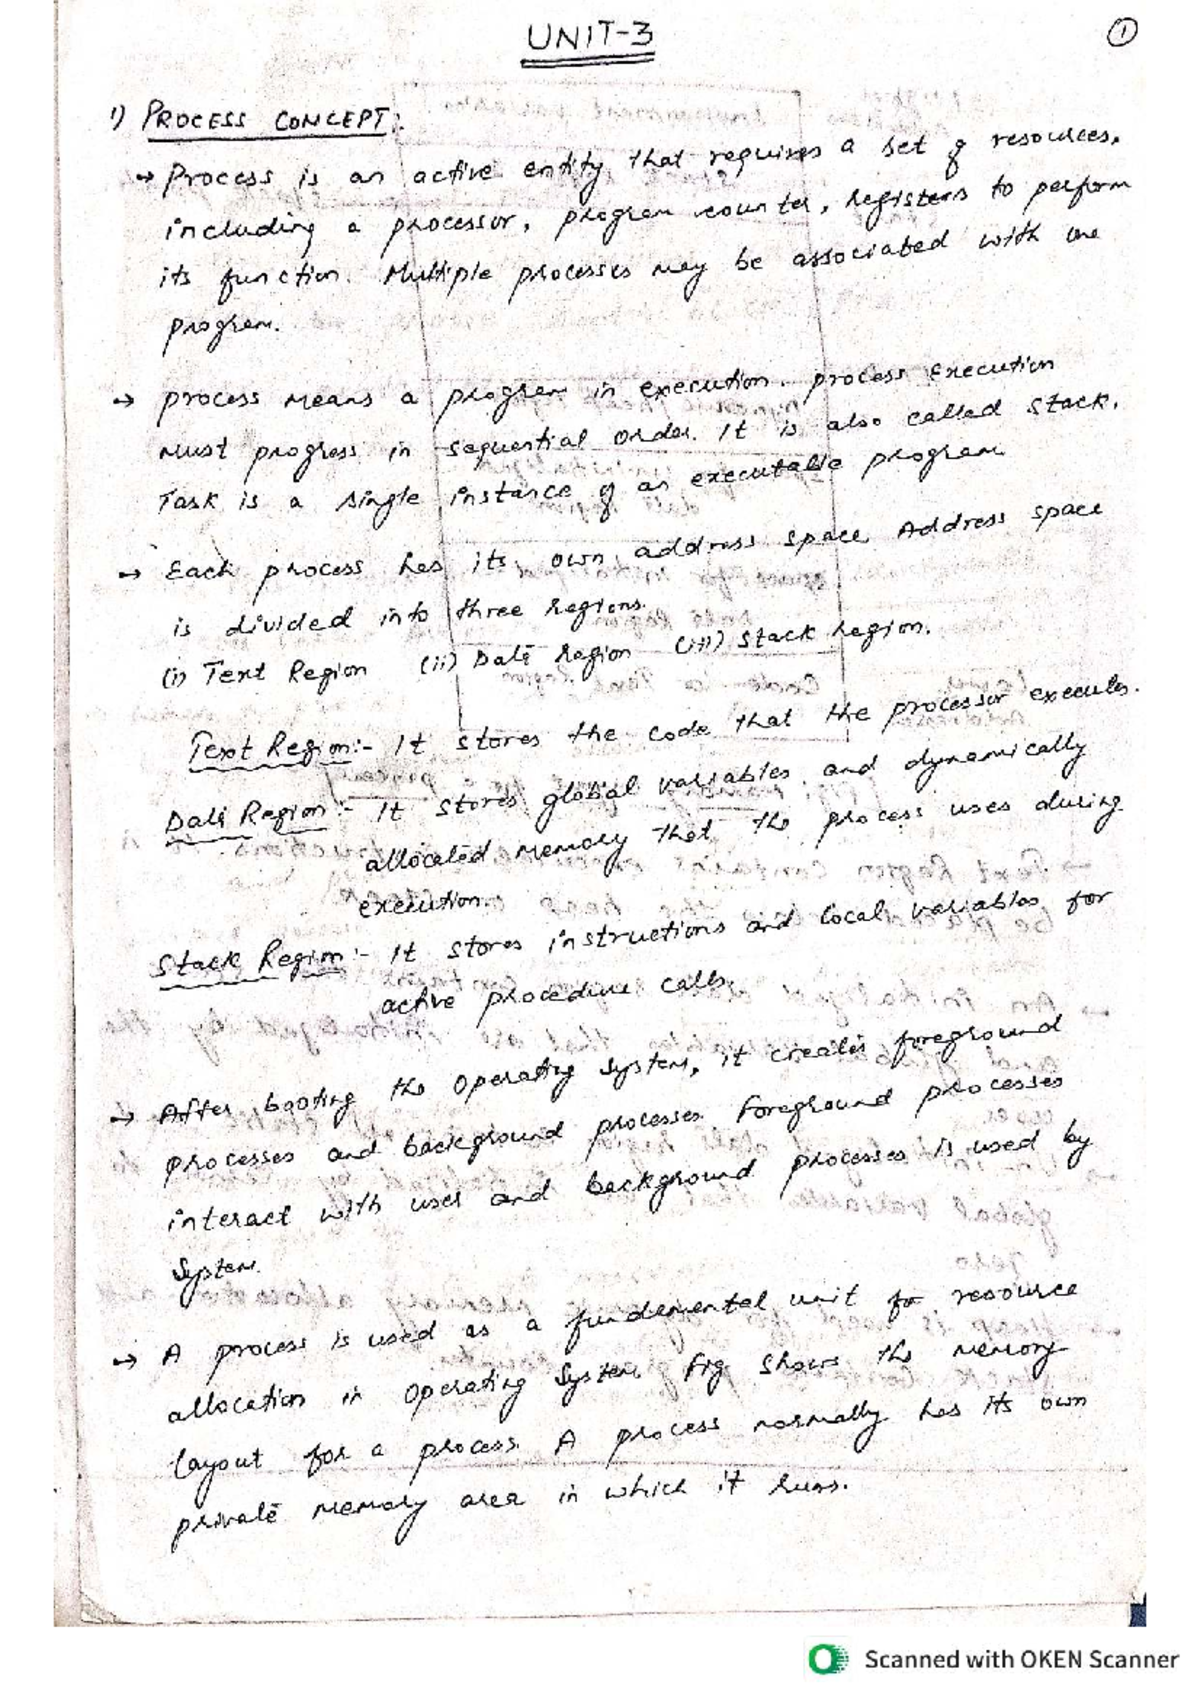 UNIT-3
1
1) PROCESS CONCEPT:
→ Process is an active entity that requires a set of resources,
including a processor, program counter, registers to perform
its function. Multiple processes may be associated with one
program.
→ process means a program in execution. process execution
must progress in sequential order. It is also called stack.
Task is a single instance of an executable program
→ Each process has its own address space Address space
is divided into three regions.
(i) Text Region (ii) Data region (iii) Stack region.
Text Region:- It stores the code that the processor executes.
Data Region:- It stores global variables and dynamically
allocated memory that the process uses during
execution.
Stack Region:- It stores instructions and local variables for
active procedure calls.
→ After booting the operating system, it creates foreground
processes and background processes. Foreground processes
interact with user and background processes is used by
system.
→ A process is used as a fundemental unit for resource
allocation in operating system Fig shows the memory
layout for a process. A process normally has its own
private memory area in which it runs.
Scanned with OKEN Scanner